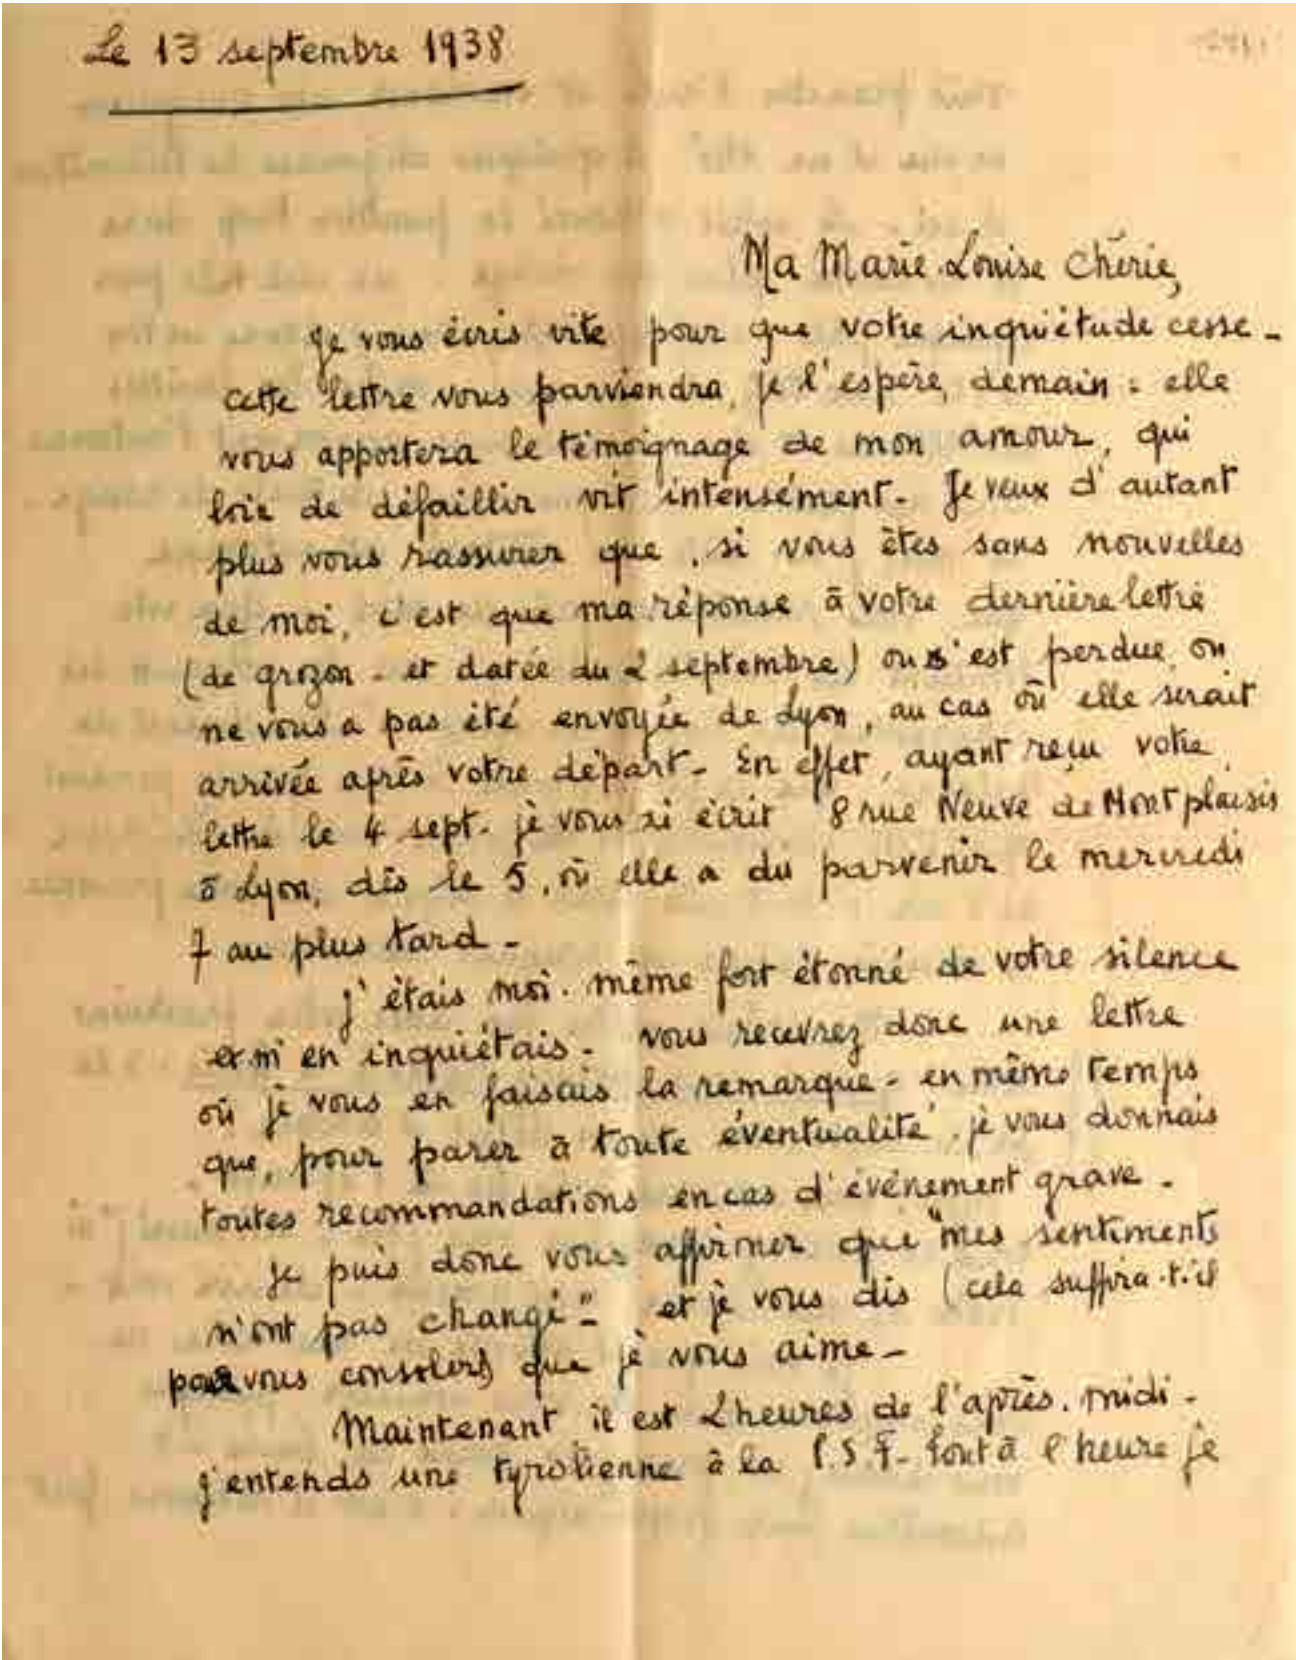 Le 13 septembre 1938
Ma Marie-Louise Chérie,
Je vous écris vite pour que votre inquiétude cesse -
cette lettre vous parviendra, je l'espère, demain : elle
vous apportera le témoignage de mon amour, qui
loin de défaillir vit intensément - Je veux d'autant
plus vous rassurer que, si vous êtes sans nouvelles
de moi, c'est que ma réponse à votre dernière lettre
(de Grozon - et datée du 2 septembre) ou s'est perdue, ou
ne vous a pas été envoyée de Lyon, au cas où elle serait
arrivée après votre départ - En effet, ayant reçu votre
lettre le 4 sept. je vous ai écrit 8 rue Neuve de Montplaisir
à Lyon, dès le 5, où elle a du parvenir le mercredi
7 au plus tard -
j'étais moi-même fort étonné de votre silence
et m'en inquiétais - vous recevrez donc une lettre
où je vous en faisais la remarque - en même temps
que, pour parer à toute éventualité, je vous donnais
toutes recommandations en cas d'événement grave -
Je puis donc vous affirmer que "mes sentiments
n'ont pas changé" - et je vous dis (cela suffira-t-il
pour vous consoler) que je vous aime -
Maintenant il est 2 heures de l'après-midi -
j'entends une tyrolienne à la T.S.F - tout à l'heure je